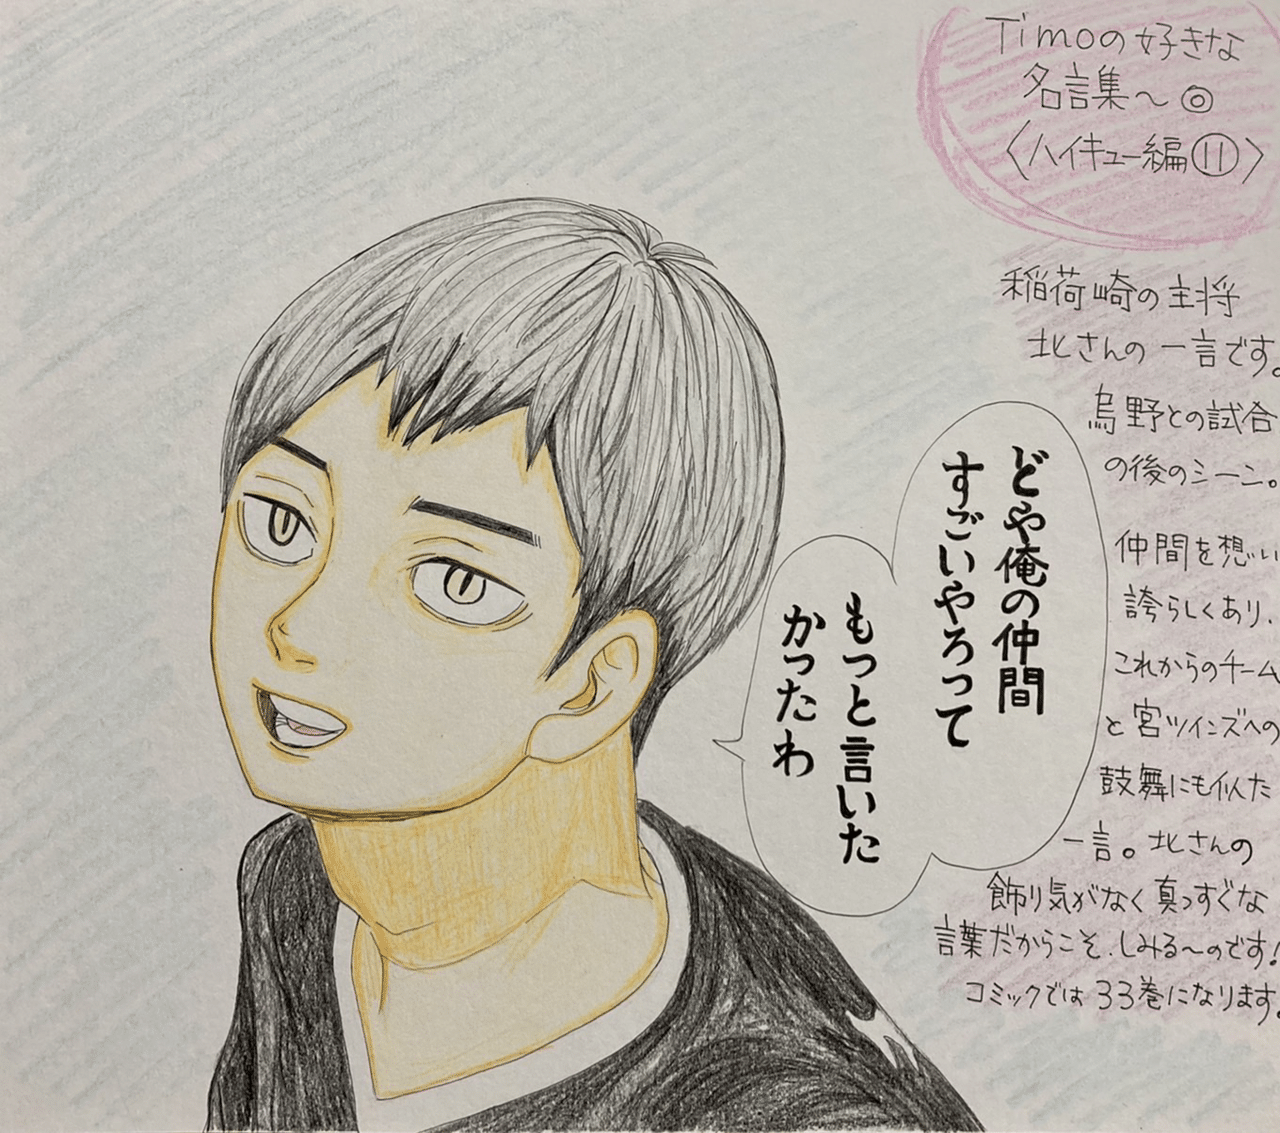 Timoの好きな
名言集～◎
〈ハイキュー編⑪〉
稲荷崎の主将
北さんの一言です。
烏野との試合
の後のシーン。
仲間を想い
誇らしくあり、
これからのチーム
と宮ツインズへの
鼓舞にも似た
一言。北さんの
飾り気がなく真っすぐな
言葉だからこそ、しみる～のです!
コミックでは33巻になります。
どや俺の仲間
すごいやろって
もっと言いた
かったわ